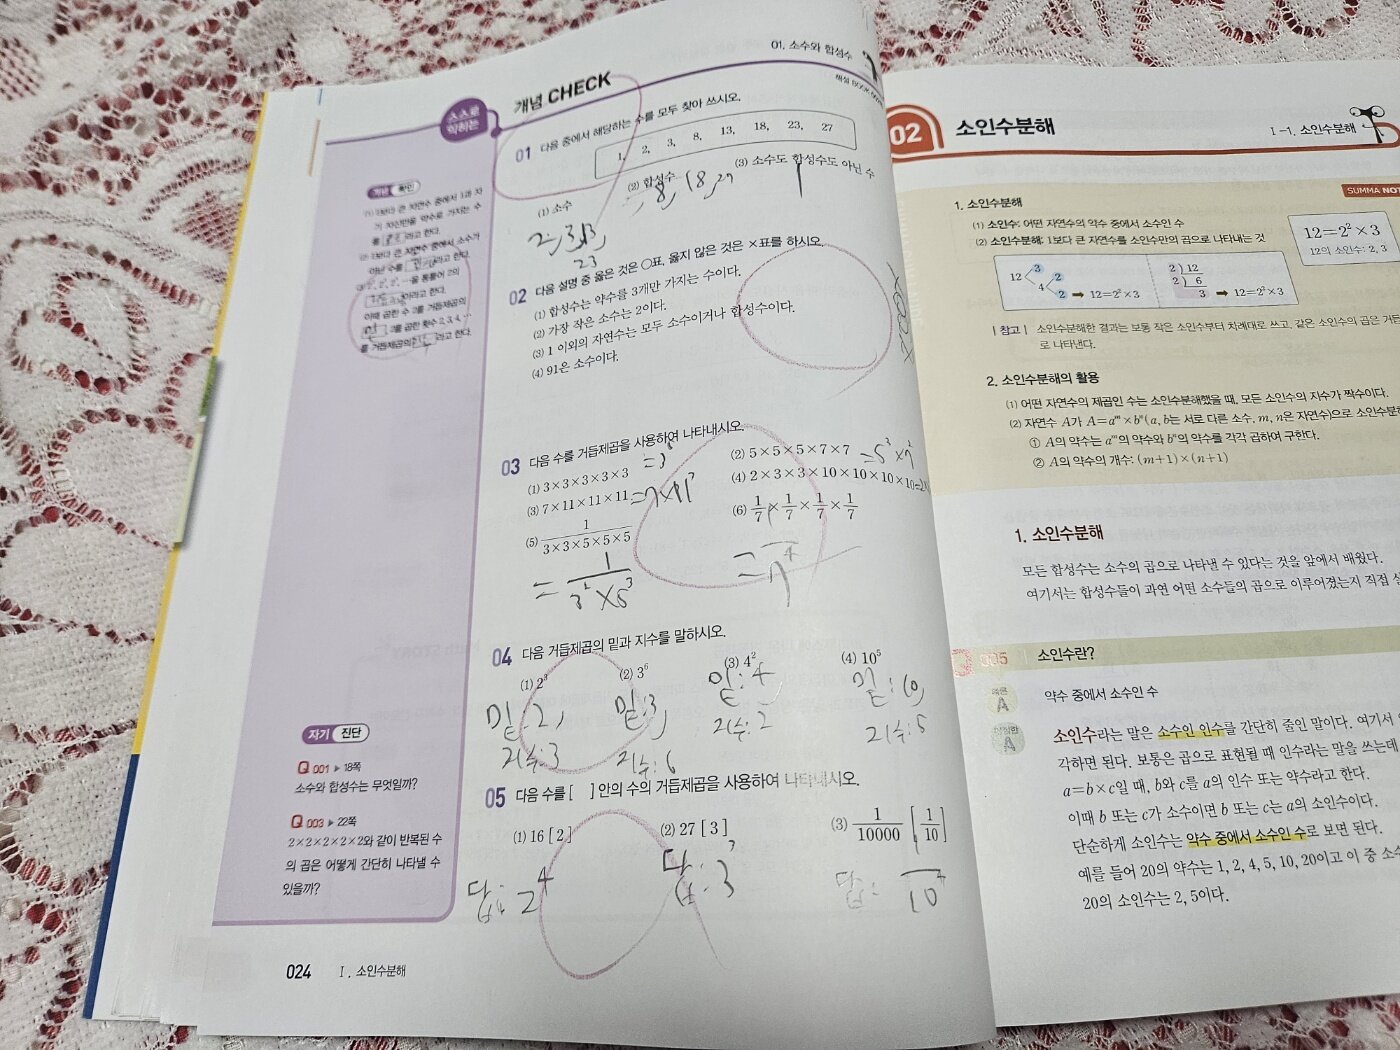 01. 소수와 합성수
스스로
익히는
개념 CHECK
해설 BOOK
01 다음 중에서 해당하는 수를 모두 찾아 쓰시오.
1, 2, 3, 8, 13, 18, 23, 27
(1) 소수
(2) 합성수
(3) 소수도 합성수도 아닌 수
2, 3, 13,
23
8, 18, 27
1
02 다음 설명 중 옳은 것은 ○표, 옳지 않은 것은 ×표를 하시오.
(1) 합성수는 약수를 3개만 가지는 수이다.
(2) 가장 작은 소수는 2이다.
(3) 1 이외의 자연수는 모두 소수이거나 합성수이다.
(4) 91은 소수이다.
×○○×
03 다음 수를 거듭제곱을 사용하여 나타내시오.
(1) 3×3×3×3×3
(2) 5×5×5×7×7 =5³×7²
(3) 7×11×11×11 =7×11³
(4) 2×3×3×10×10×10×10
(5) 1/(3×3×5×5×5)
(6) 1/7×1/7×1/7×1/7
04 다음 거듭제곱의 밑과 지수를 말하시오.
(1) 2³
(2) 3⁶
(3) 4²
(4) 10⁵
밑:2,
지수:3
밑:3,
지수:6
밑:4,
지수:2
밑:10,
지수:5
05 다음 수를 [ ] 안의 수의 거듭제곱을 사용하여 나타내시오.
(1) 16 [ 2 ]
(2) 27 [ 3 ]
(3) 1/10000 [1/10]
답: 2⁴
답: 3³
답:
개념 확인
(1) 1보다 큰 자연수 중에서 1과 자
기 자신만을 약수로 가지는 수
를 라고 한다.
(2) 1보다 큰 자연수 중에서 소수가
아닌 수를 라고 한다.
이라고 한다.
이때 곱한 수 2를 거듭제곱의
, 2를 곱한 횟수 2, 3, 4, …
를 거듭제곱의 라고 한다.
자기 진단
Q 001 ▶ 18쪽
소수와 합성수는 무엇일까?
Q 003 ▶ 22쪽
2×2×2×2×2와 같이 반복된 수
의 곱은 어떻게 간단히 나타낼 수
있을까?
024 Ⅰ. 소인수분해
02 소인수분해
Ⅰ-1. 소인수분해
SUMMA NOT
1. 소인수분해
(1) 소인수: 어떤 자연수의 약수 중에서 소인수
(2) 소인수분해: 1보다 큰 자연수를 소인수만의 곱으로 나타내는 것
12=2²×3
12의 소인수: 2, 3
12 3 4 2 2 ➡ 12=2²×3
2 ) 12
2 ) 6
3 ➡ 12=2²×3
| 참고 | 소인수분해한 결과는 보통 작은 소인수부터 차례대로 쓰고, 같은 소인수의 곱은 거듭
로 나타낸다.
2. 소인수분해의 활용
(1) 어떤 자연수의 제곱인 수는 소인수분해했을 때, 모든 소인수의 지수가 짝수이다.
(2) 자연수 A가 A=aᵐ×bⁿ(a, b는 서로 다른 소수, m, n은 자연수)으로 소인수분해
① A의 약수는 aᵐ의 약수와 bⁿ의 약수를 각각 곱하여 구한다.
② A의 약수의 개수: (m+1)×(n+1)
1. 소인수분해
모든 합성수는 소수의 곱으로 나타낼 수 있다는 것을 앞에서 배웠다.
여기서는 합성수들이 과연 어떤 소수들의 곱으로 이루어졌는지 직접
Q 005 소인수란?
A 약수 중에서 소인수 수
A 소인수라는 말은 소수인 인수를 간단히 줄인 말이다. 여기서
각하면 된다. 보통은 곱으로 표현될 때 인수라는 말을 쓰는데
a=b×c일 때, b와 c를 a의 인수 또는 약수라고 한다.
이때 b 또는 c가 소수이면 b 또는 c는 a의 소인수이다.
단순하게 소인수는 약수 중에서 소수인 수로 보면 된다.
예를 들어 20의 약수는 1, 2, 4, 5, 10, 20이고 이 중 소
20의 소인수는 2, 5이다.